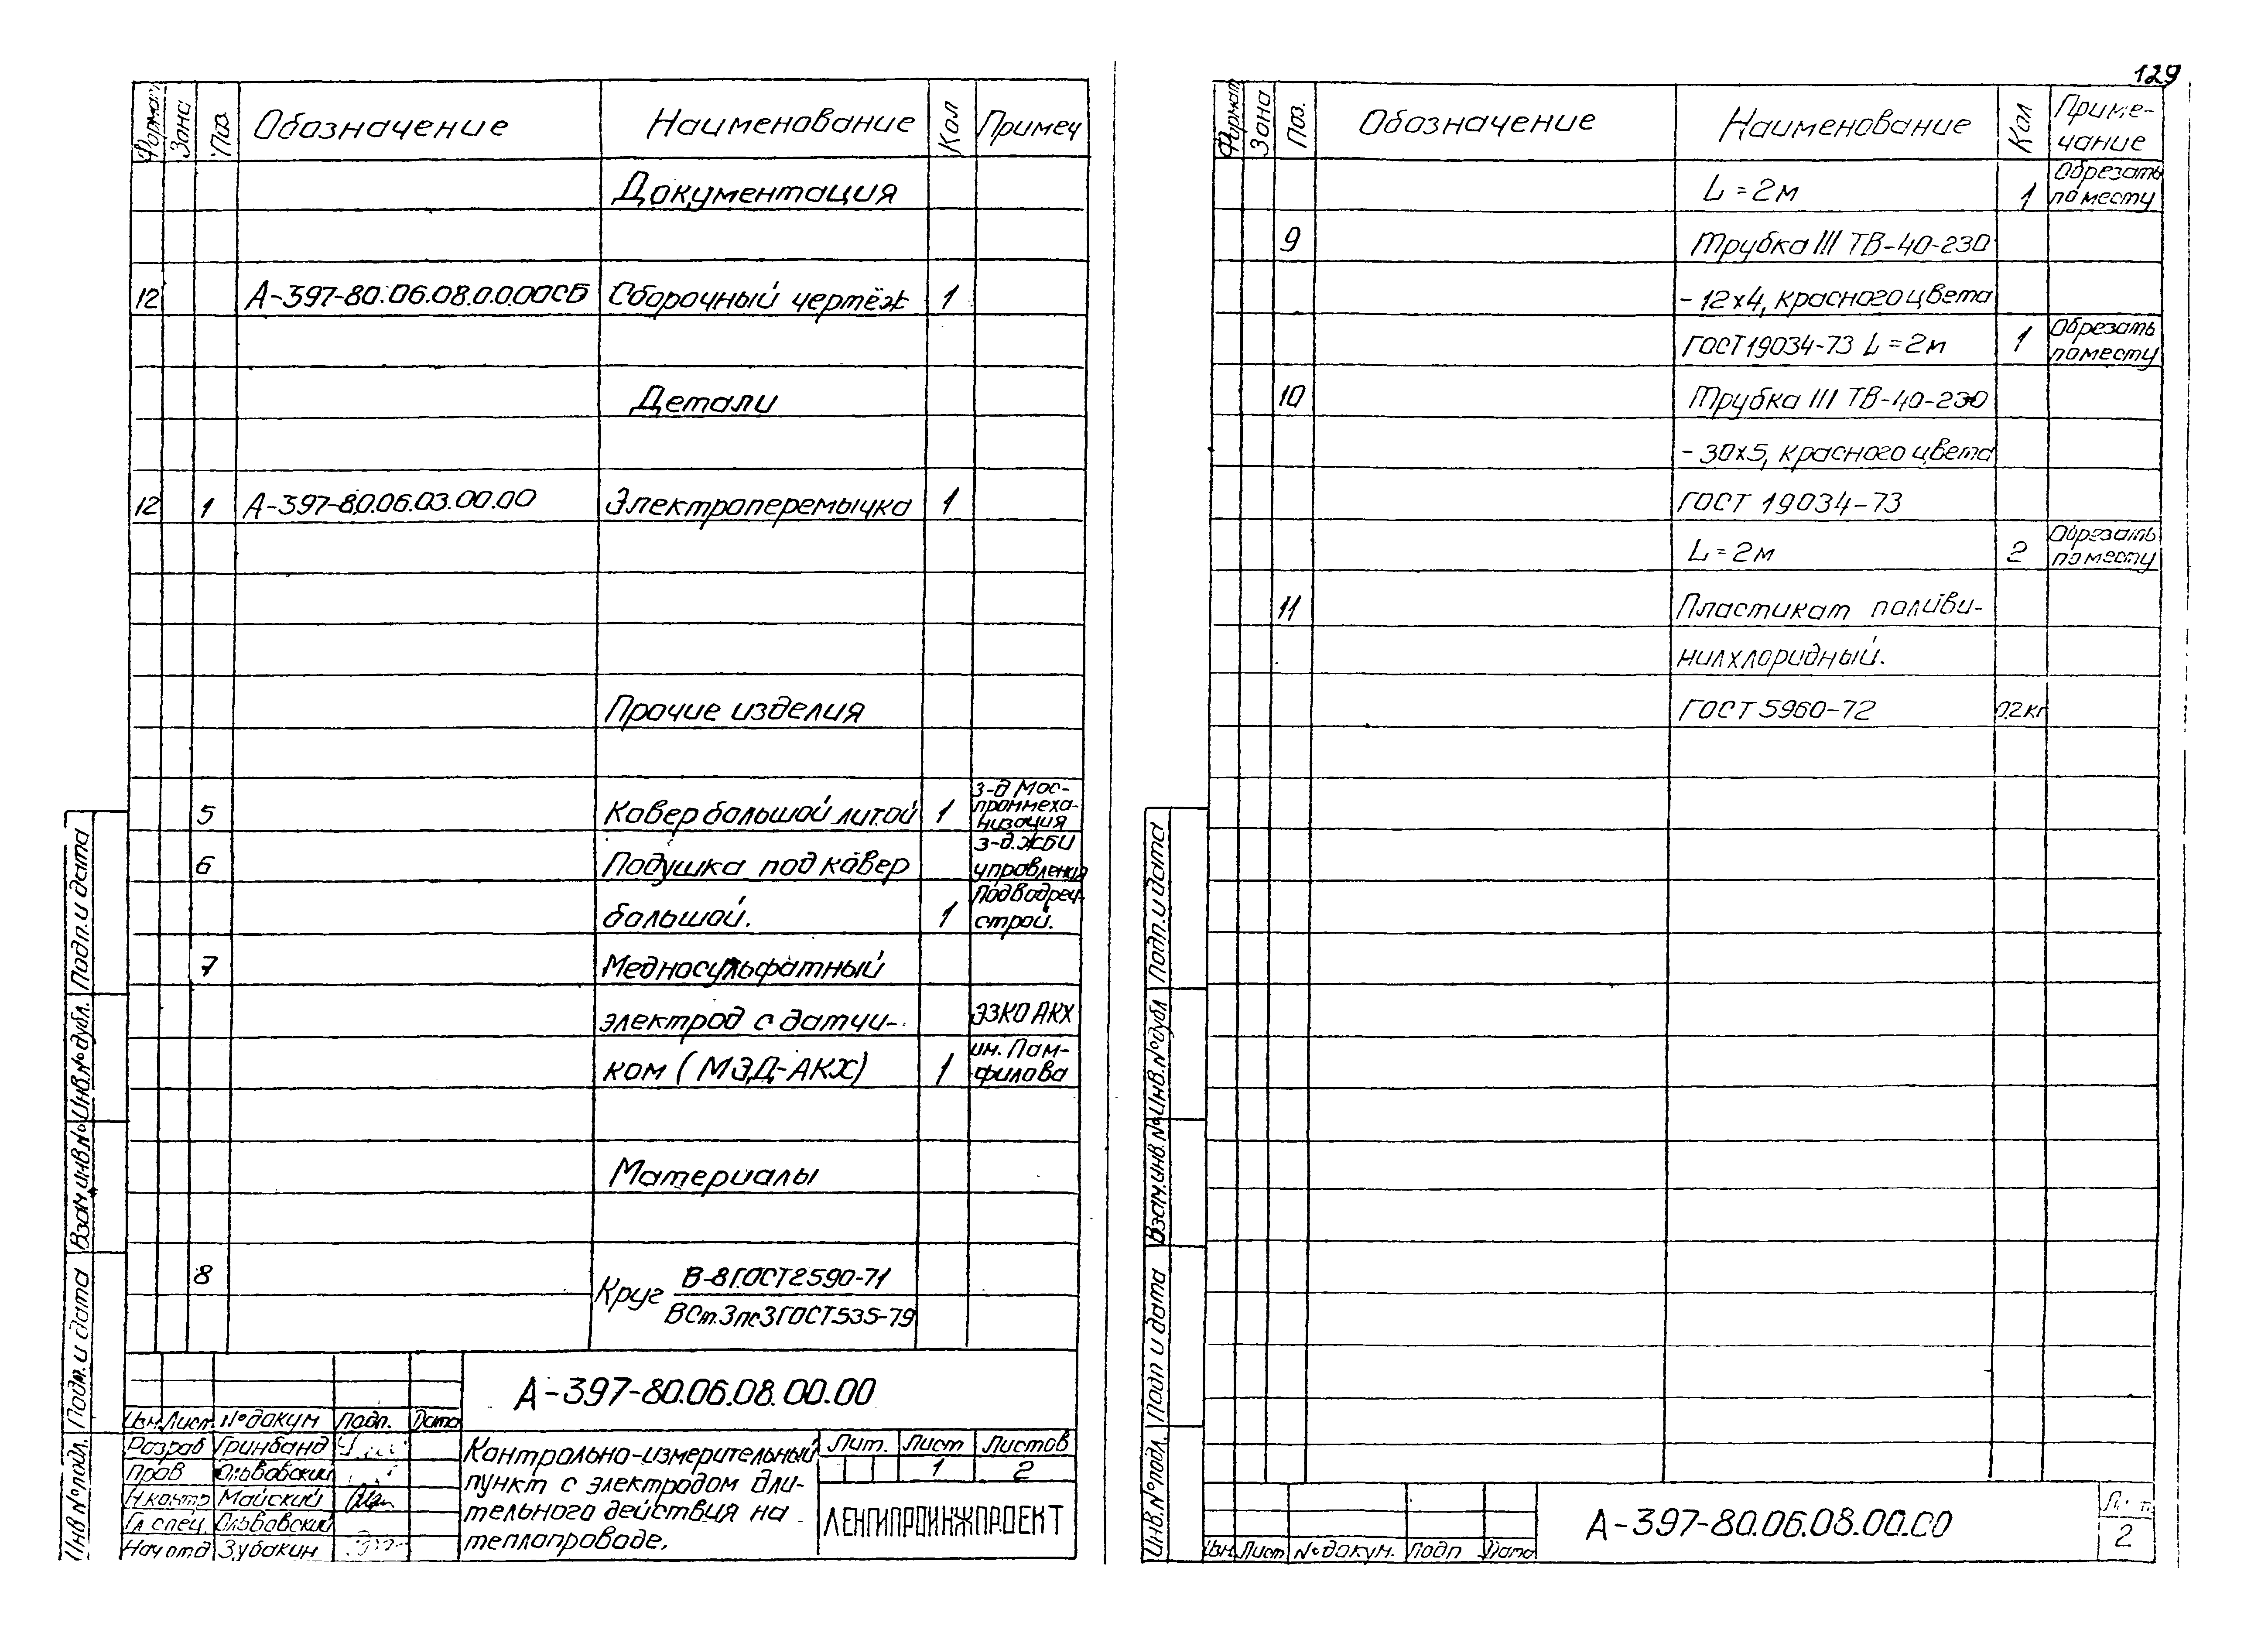 129
Формат Зона Поз. Обозначение Наименование Кол Примеч
Документация
12 А-397-80.06.08.0.0.00СБ Сборочный чертёж 1
Детали
12 1 А-397-80.06.03.00.00 Электроперемычка 1
Прочие изделия
5 Ковер большой литой 1 з-д Мос-
проммеха-
низация
6 Подушка под ковер з-д.ЖБИ
управления
большой. 1 Подводреч-
строй.
7 Медносульфатный
электрод с датчи- ЭЗКО АКХ
ком (МЭД-АКХ) 1 им. Пам-
филова
Материалы
8 Круг В-8 ГОСТ 2590-71
ВСт.3пс3 ГОСТ 535-79
А-397-80.06.08.00.00
Изм. Лист №докум Подп. Дата
Разраб Гринбанд
Пров Ольвовский
Н.контр Майский
Гл спец Ольвовский
Нач отд Зубакин
Контрольно-измерительный
пункт с электродом дли-
тельного действия на
теплопроводе.
Лит. Лист Листов
1 2
ЛЕНГИПРОИНЖПРОЕКТ
Инв №подл. Подп. и дата Взам.инв.№ Инв.№дубл. Подп. и дата
Формат Зона Поз. Обозначение Наименование Кол Приме-
чание
L = 2м 1 Обрезать
по месту
9 Трубка III ТВ-40-230
- 12х4, красного цвета
ГОСТ 19034-73 L = 2м 1 Обрезать
по месту
10 Трубка III ТВ-40-230
- 30х5, красного цвета
ГОСТ 19034-73
L = 2м 2 Обрезать
по месту
11 Пластикат поливи-
нилхлоридный.
ГОСТ 5960-72 0,2кг
Инв.№подл. Подп и дата Взам.инв.№ Инв.№дубл Подп. и дата
Изм. Лист №докум. Подп Дата
А-397-80.06.08.00.00
2